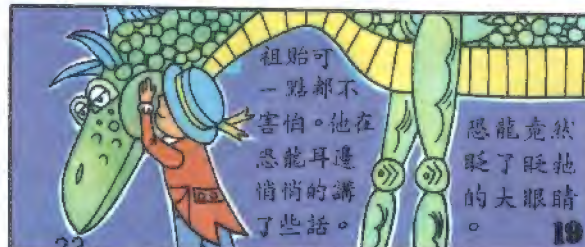 祖貽可
一點都不
害怕。他在
恐龍耳邊
悄悄的講
了些話。
恐龍竟然
眨了眨牠
的大眼睛
。
19